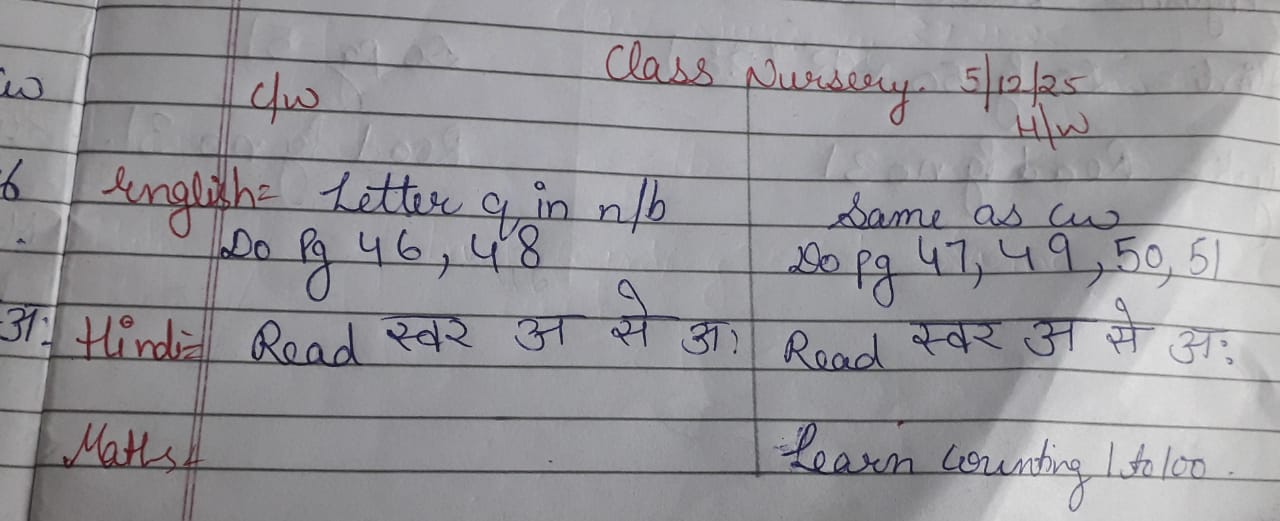 Class Nursery. 5/12/25
cw C/W H/W
6 English= Letter q in n/b Same as cw
Do Pg 46, 48 Do pg 47, 49, 50, 51
अः Hindi= Read स्वर अ से अः Read स्वर अ से अः
Maths= Learn counting 1 to 100.